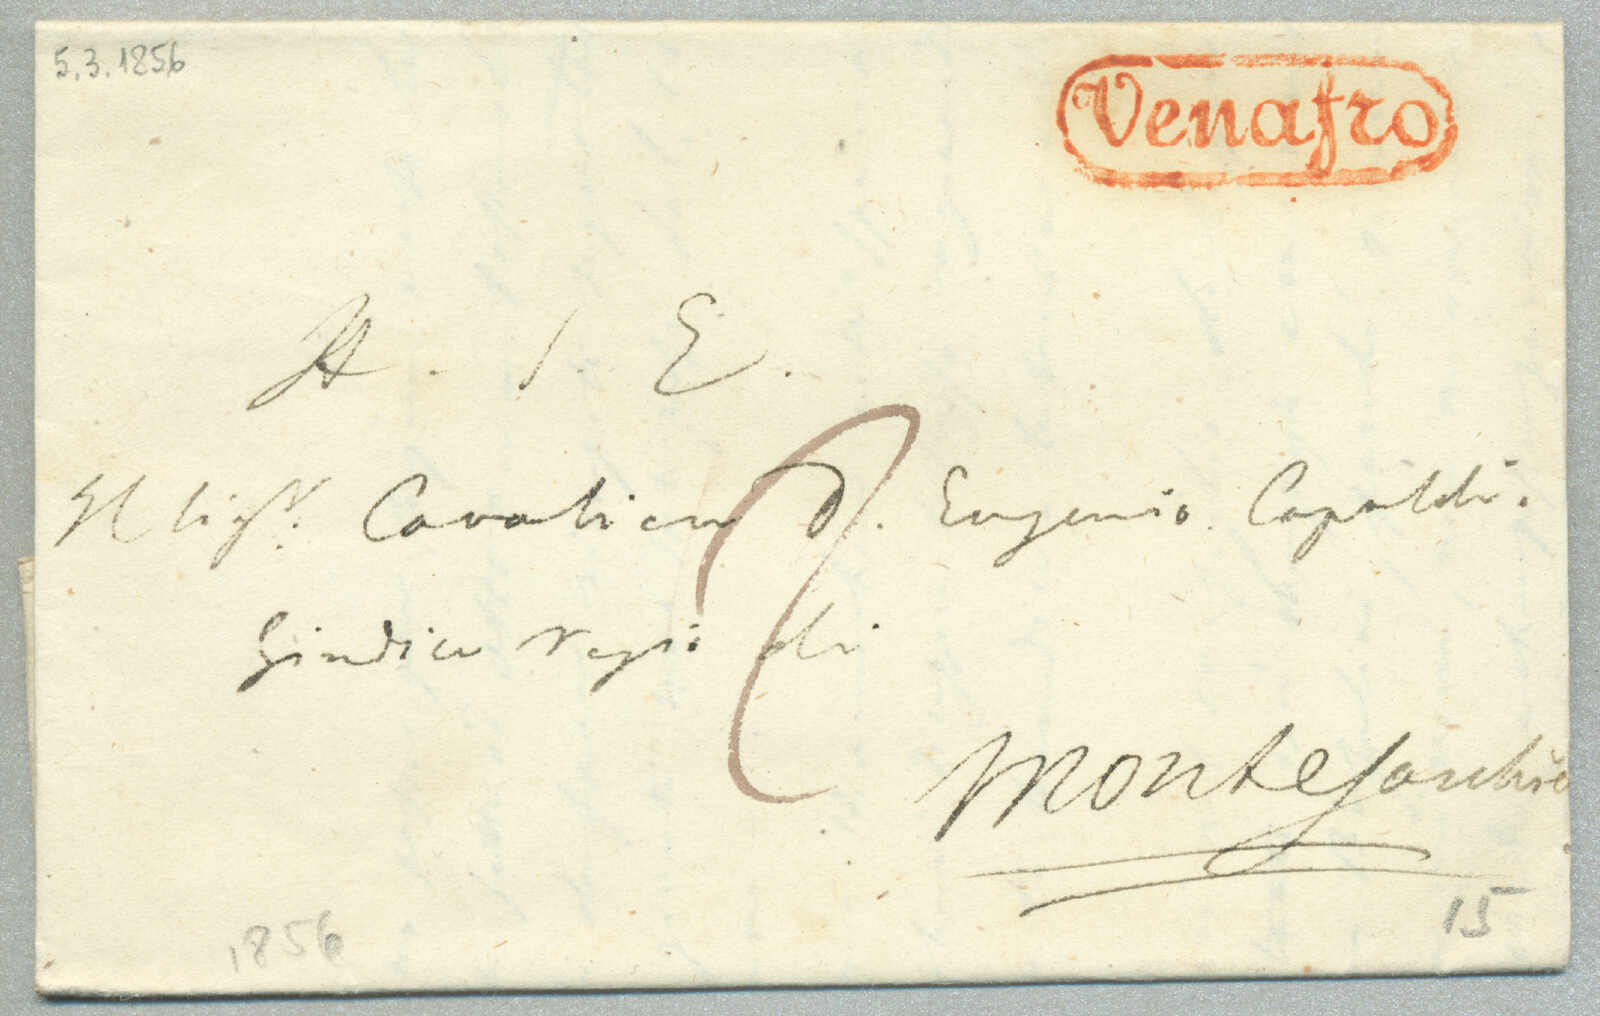 5.3.1856
Venafro
A. S. E.
Il Sigr. Cavaliere D. Eugenio Capaldi.
Giudice regio di
Montesarchio
1856
15